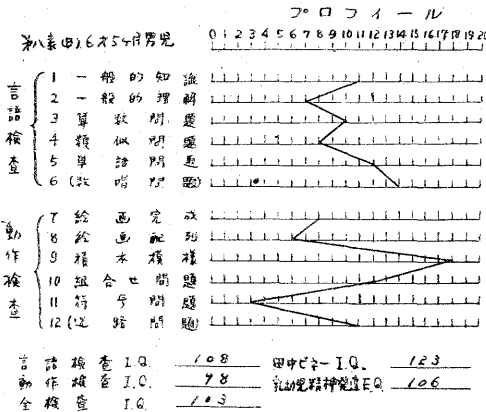 プロフィール
第八表(由).6才54月男児
0 1 2 3 4 5 6 7 8 9 10 11 12 13 14 15 16 17 18 19 20
言語検査
1 一般的知識
2 一般的理解
3 算数問題
4 類似問題
5 単語問題
6 (数唱問題)
動作検査
7 絵画完成
8 絵画配列
9 積木模様
10 組合せ問題
11 符号問題
12 (迷路問題)
言語検査 I.Q. 108
動作検査 I.Q. 98
全検査 I.Q. 103
田中ビネー I.Q. 123
乳幼児精神発達E.Q. 106